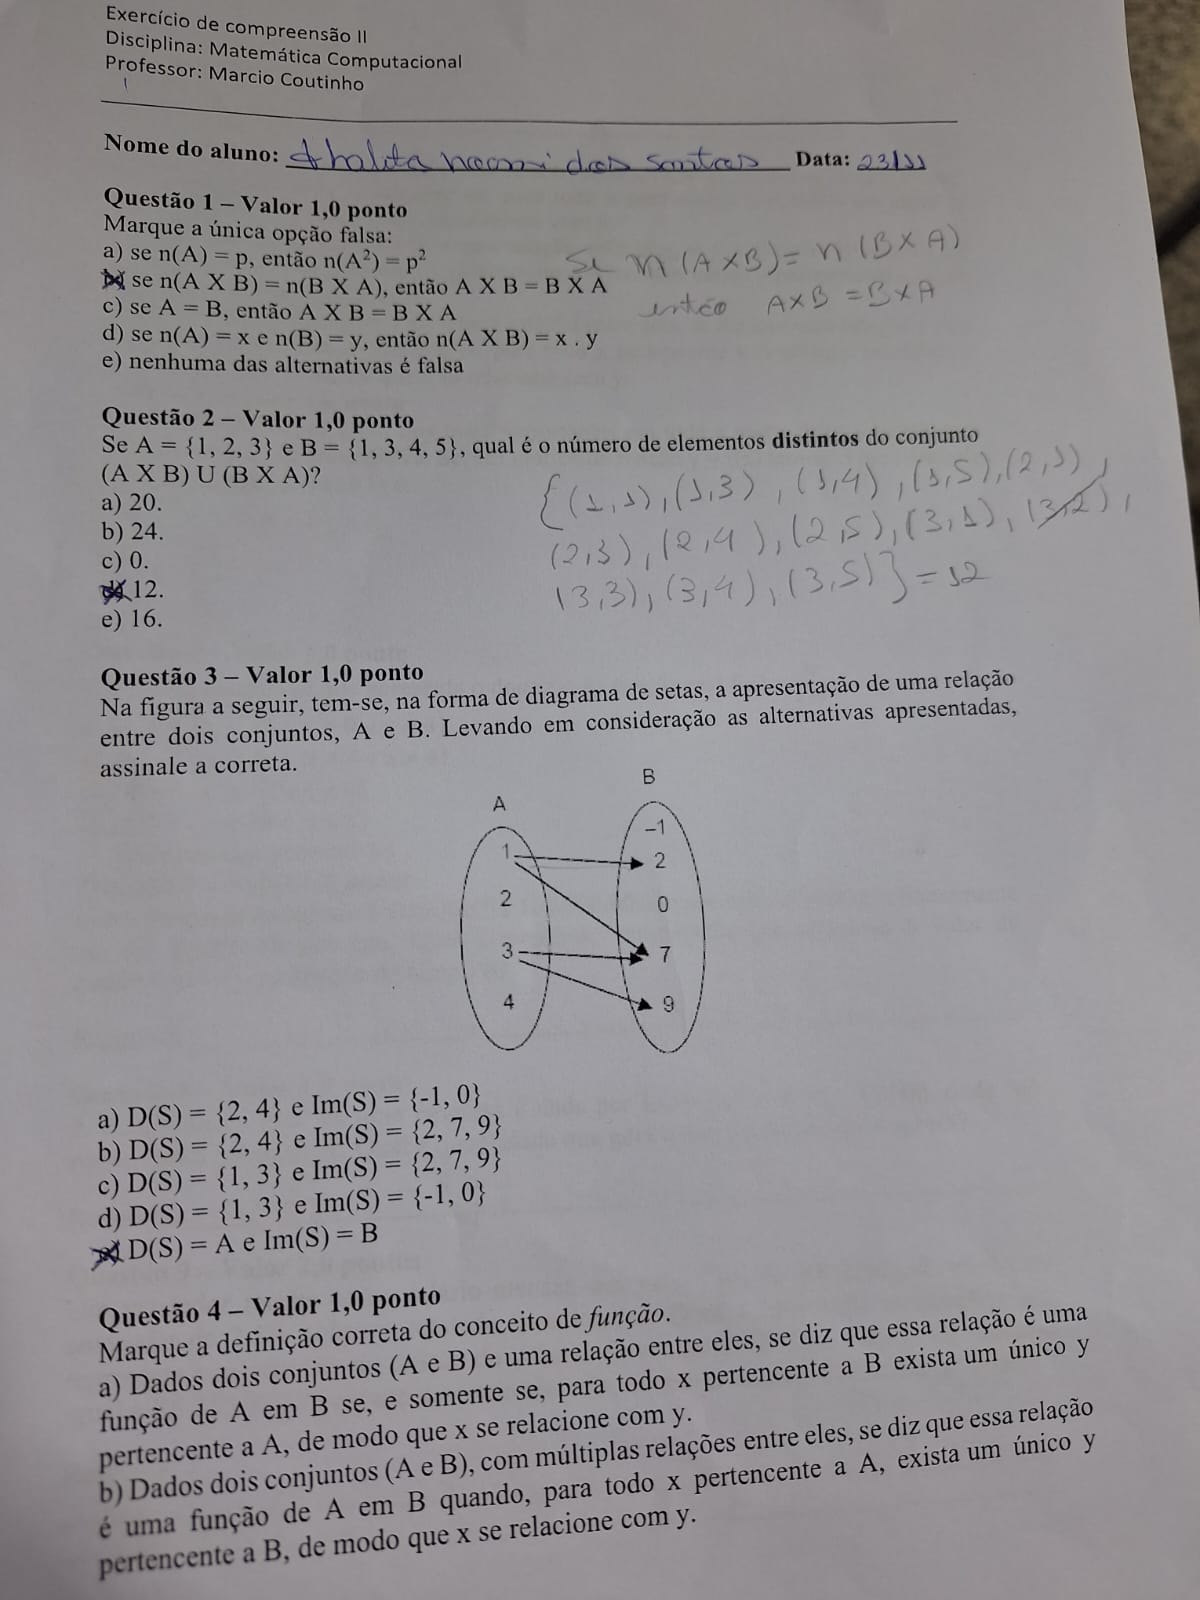 Exercício de compreensão II
Disciplina: Matemática Computacional
Professor: Marcio Coutinho
Nome do aluno: thalita naomi dos santos Data: 23/11
Questão 1 – Valor 1,0 ponto
Marque a única opção falsa:
a) se n(A) = p, então n(A²) = p²
b) se n(A X B) = n(B X A), então A X B = B X A
c) se A = B, então A X B = B X A
d) se n(A) = x e n(B) = y, então n(A X B) = x . y
e) nenhuma das alternativas é falsa
Se n (A X B) = n (B X A)
então A X B = B X A
Questão 2 – Valor 1,0 ponto
Se A = {1, 2, 3} e B = {1, 3, 4, 5}, qual é o número de elementos distintos do conjunto
(A X B) U (B X A)?
a) 20.
b) 24.
c) 0.
d) 12.
e) 16.
{(1,1), (1,3), (1,4), (1,5), (2,1),
(2,3), (2,4), (2,5), (3,1), (3,2),
(3,3), (3,4), (3,5)} = 12
Questão 3 – Valor 1,0 ponto
Na figura a seguir, tem-se, na forma de diagrama de setas, a apresentação de uma relação
entre dois conjuntos, A e B. Levando em consideração as alternativas apresentadas,
assinale a correta.
A
B
1
2
3
4
–1
2
0
7
9
a) D(S) = {2, 4} e Im(S) = {-1, 0}
b) D(S) = {2, 4} e Im(S) = {2, 7, 9}
c) D(S) = {1, 3} e Im(S) = {2, 7, 9}
d) D(S) = {1, 3} e Im(S) = {-1, 0}
D(S) = A e Im(S) = B
Questão 4 – Valor 1,0 ponto
Marque a definição correta do conceito de função.
a) Dados dois conjuntos (A e B) e uma relação entre eles, se diz que essa relação é uma
função de A em B se, e somente se, para todo x pertencente a B exista um único y
pertencente a A, de modo que x se relacione com y.
b) Dados dois conjuntos (A e B), com múltiplas relações entre eles, se diz que essa relação
é uma função de A em B quando, para todo x pertencente a A, exista um único y
pertencente a B, de modo que x se relacione com y.